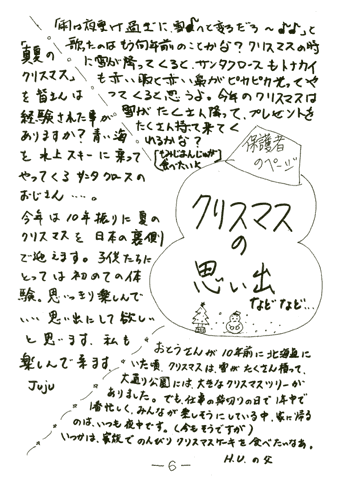 「雨は夜更け過ぎに、雪へと変るだろ〜♪♪」と
歌ったのはもう何年前のことかな？クリスマスの時
に雪が降ってくると、サンタクロースもトナカイ
も赤い服と赤い鼻がピカピカ光ってや
ってくると思うよ。今年のクリスマスは
雪がたくさん降って、プレゼントを
たくさん持って来てく
れるかな？
食べたいよ
「真夏の
クリスマス」
を皆さんは
経験された事が
ありますか？青い海
を水上スキーに乗って
やってくるサンタクロースの
おじさん…。
今年は10年振りに夏の
クリスマスを日本の裏側
で迎えます。子供たちに
とっては初めての体
験。思いっきり楽しんで
いい思い出にして欲しい
と思います。私も
楽しんで来ます。
Juju
保護者
のページ
クリスマス
の
思い出
などなど…
おとうさんが10年前に北海道に
いた頃、クリスマスは、雪がたくさん積って、
大通り公園には、大きなクリスマスツリーが
ありました。でも、仕事の締切りの日で1年中で
1番忙しく、みんなが楽しそうにしている中、家に帰る
のは、いつも夜中です。（今もそうですが）
いつかは、家族でのんびりクリスマスケーキを食べたいなあ。
H.U.の父
－6－